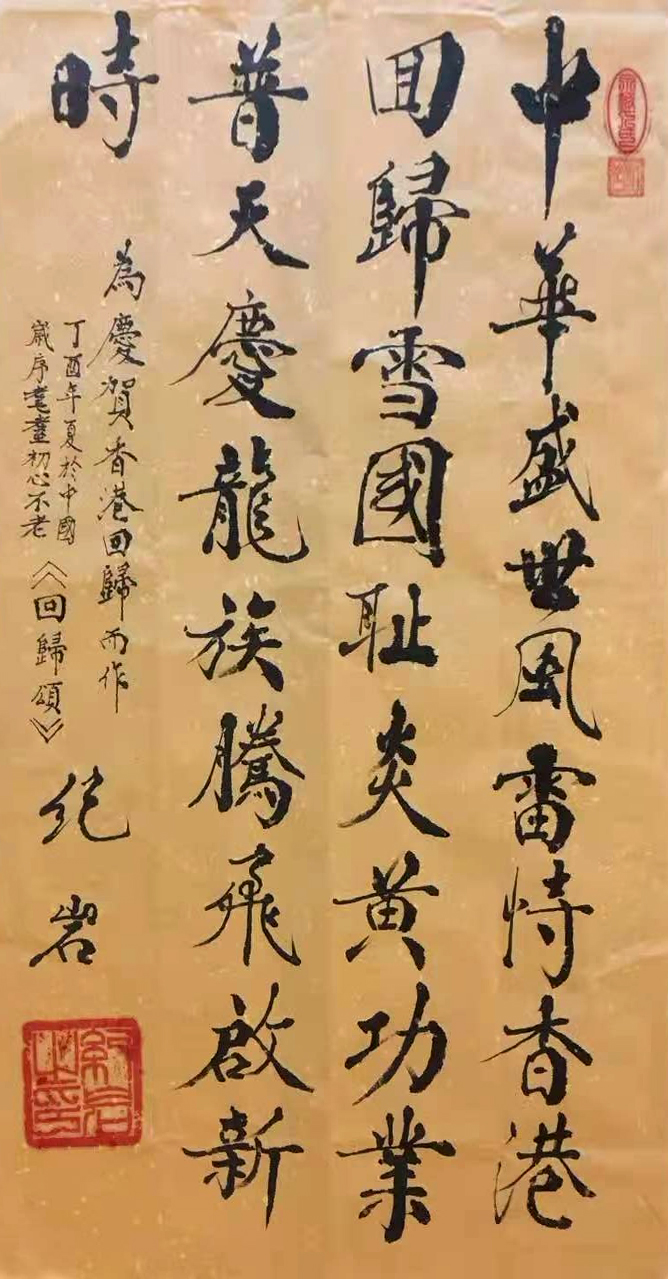 中華盛世風雷恃香港
回歸雪國耻炎黄功業
普天慶龍族騰飛啟新
時
為慶賀香港回歸而作
丁酉年夏於中國
歲序耄耋初心不老
《回歸頌》
纪岩